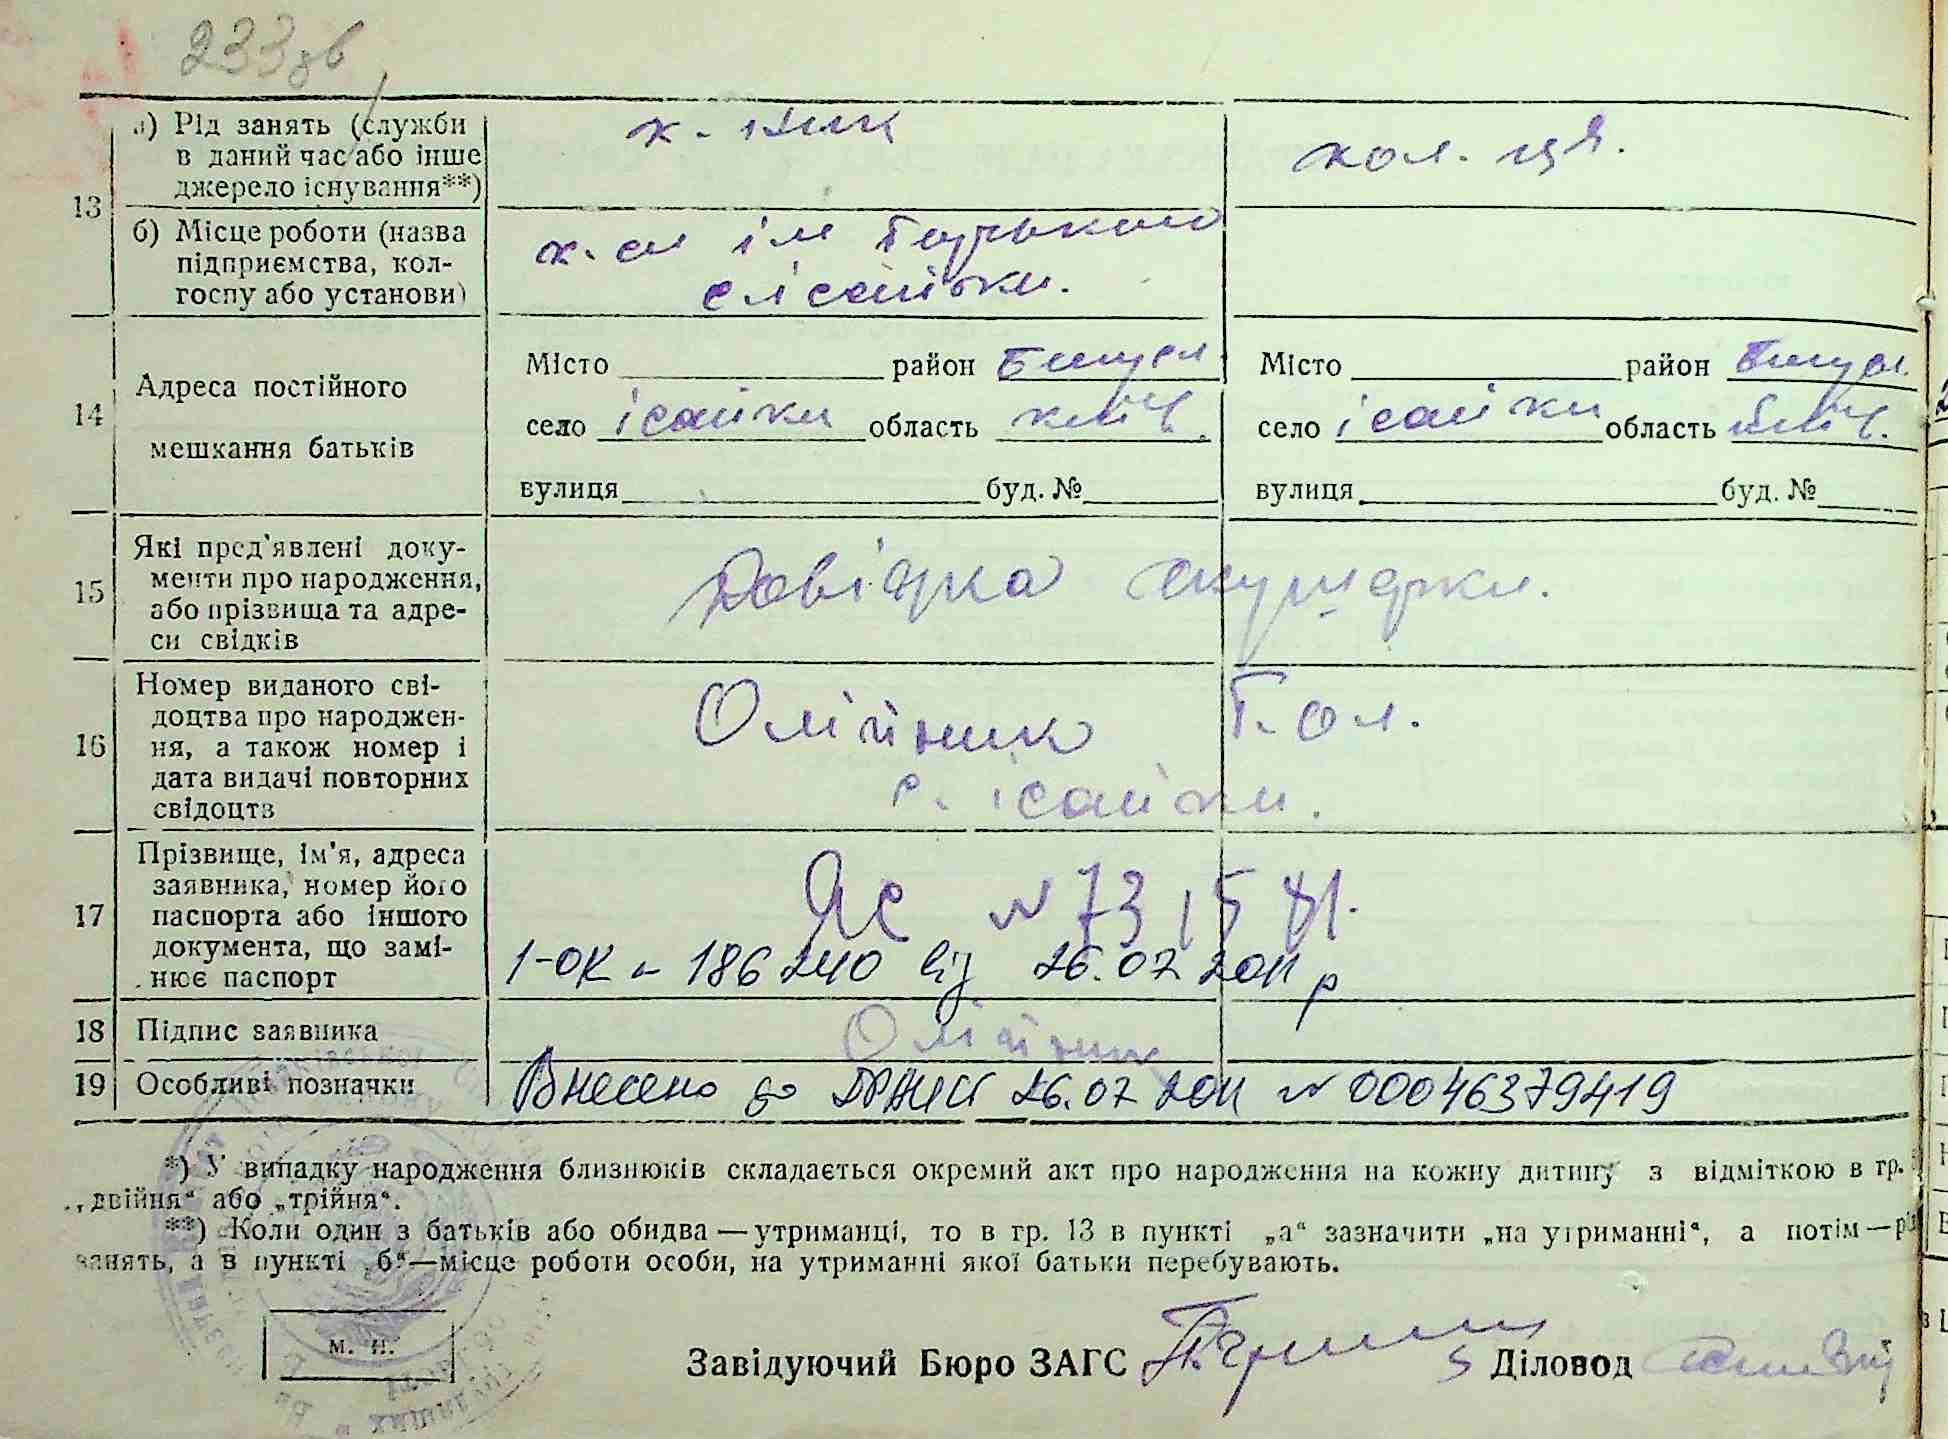 233 зв
13
а) Рід занять (служби
в даний час або інше
джерело існування**)
к-ник
кол-ця.
б) Місце роботи (назва
підприємства, кол-
госпу або установи)
ім Горького
с ісайки.
14
Адреса постійного
мешкання батьків
Місто район Богусл
село ісайки область Київ.
вулиця буд. №
Місто район Богусл.
село ісайки область Київ.
вулиця буд. №
15
Які пред'явлені доку-
менти про народження,
або прізвища та адре-
си свідків
Довідка акушерки.
16
Номер виданого сві-
доцтва про народжен-
ня, а також номер і
дата видачі повторних
свідоцтв
Олійник Г. Ол.
с. ісайки.
17
Прізвище, ім'я, адреса
заявника, номер його
паспорта або іншого
документа, що замі-
нює паспорт
ЯС №
1-ОК № 186240 від 26.07 2011 р
18
Підпис заявника
Олійник
19
Особливі позначки
Внесено до ДРАЦС 26.07 2011 № 00046379419
*) У випадку народження близнюків складається окремий акт про народження на кожну дитину з відміткою в гр.
„двійня“ або „трійня“.
**) Коли один з батьків або обидва — утриманці, то в гр. 13 в пункті „а“ зазначити „на утриманні“, а потім — рід
занять, а в пункті „б“ — місце роботи особи, на утриманні якої батьки перебувають.
М. П.
Завідуючий Бюро ЗАГС
Діловод